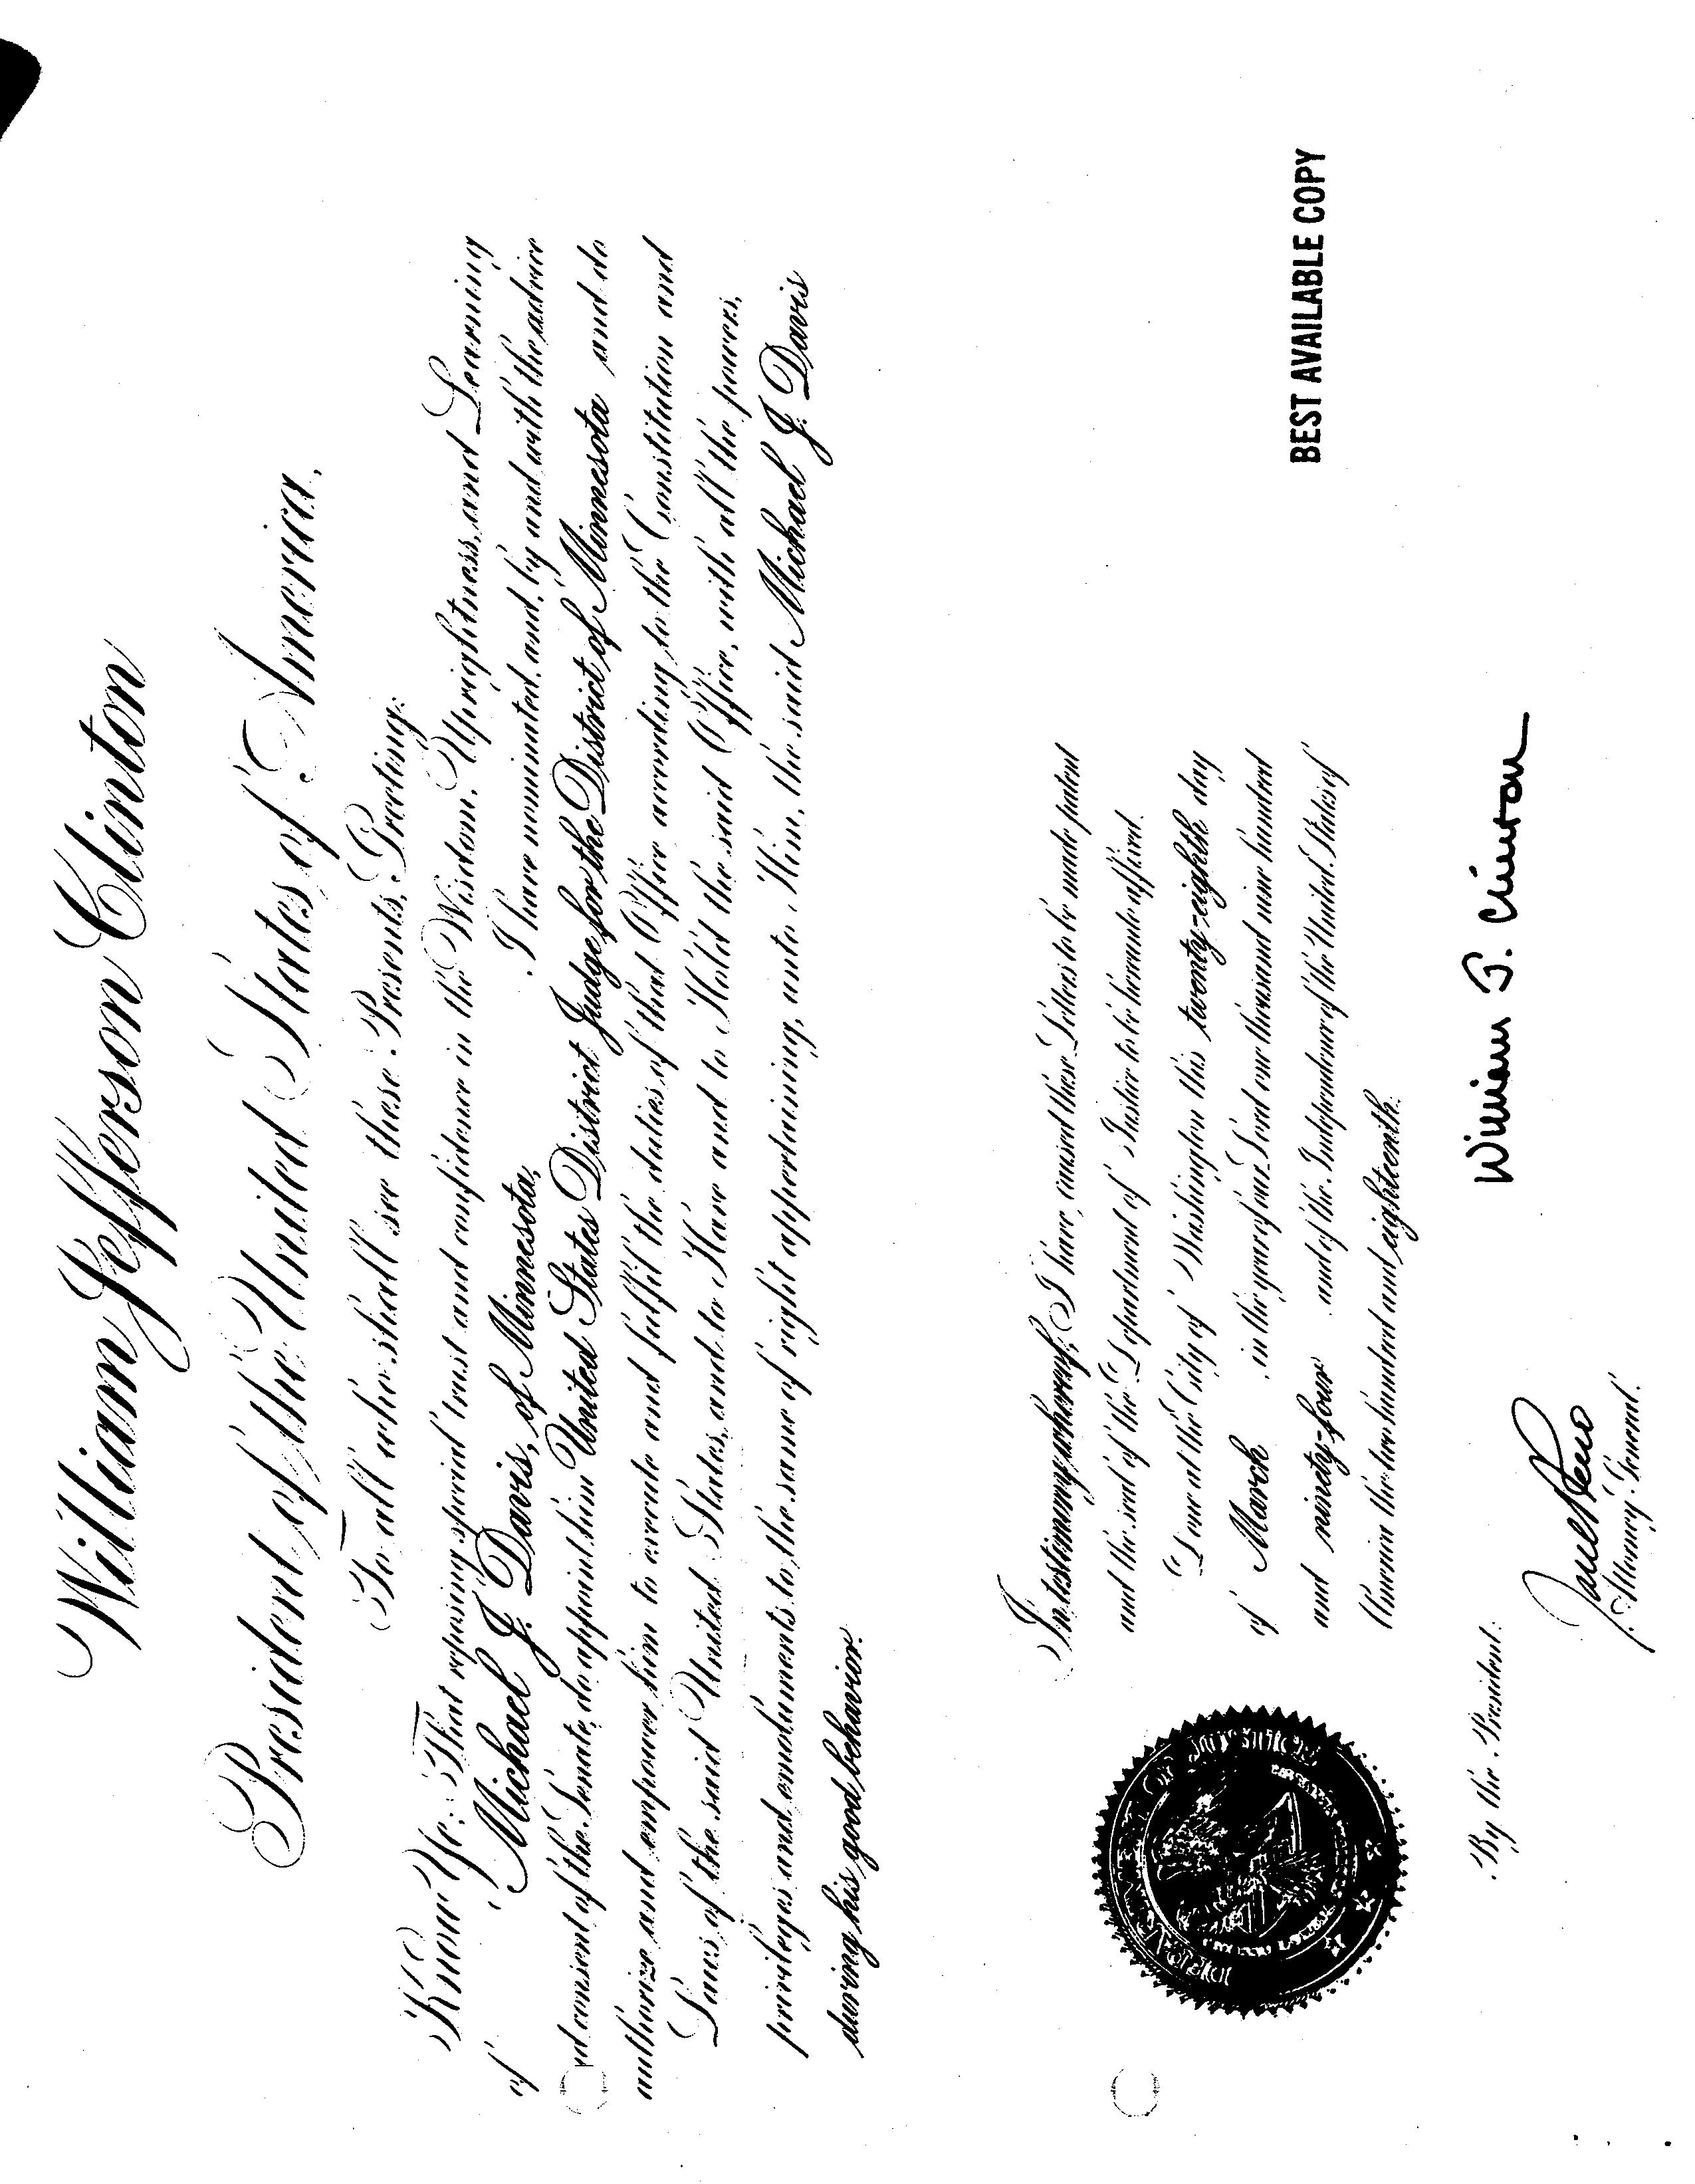 William Jefferson Clinton
President of the United States of America.
To all who shall see these Presents, Greeting:
Know Ye: That reposing special trust and confidence in the Wisdom, Uprightness, and Learning
of Michael J. Davis, of Minnesota, I have nominated, and, by and with the advice
and consent of the Senate, do appoint him United States District Judge for the District of Minnesota and do
authorize and empower him to execute and fulfil the duties of that Office according to the Constitution and
Laws of the said United States, and to Have and to Hold the said Office, with all the powers,
privileges and emoluments to the same of right appertaining, unto Him, the said Michael J. Davis
during his good behavior.
In testimony whereof, I have caused these Letters to be made patent
and the seal of the Department of Justice to be hereunto affixed.
Done at the City of Washington this twenty-eighth day
of March in the year of our Lord one thousand nine hundred
and ninety-four and of the Independence of the United States of
America the two hundred and eighteenth.
BEST AVAILABLE COPY
William J. Clinton
By the President:
Janet Reno
Attorney General.